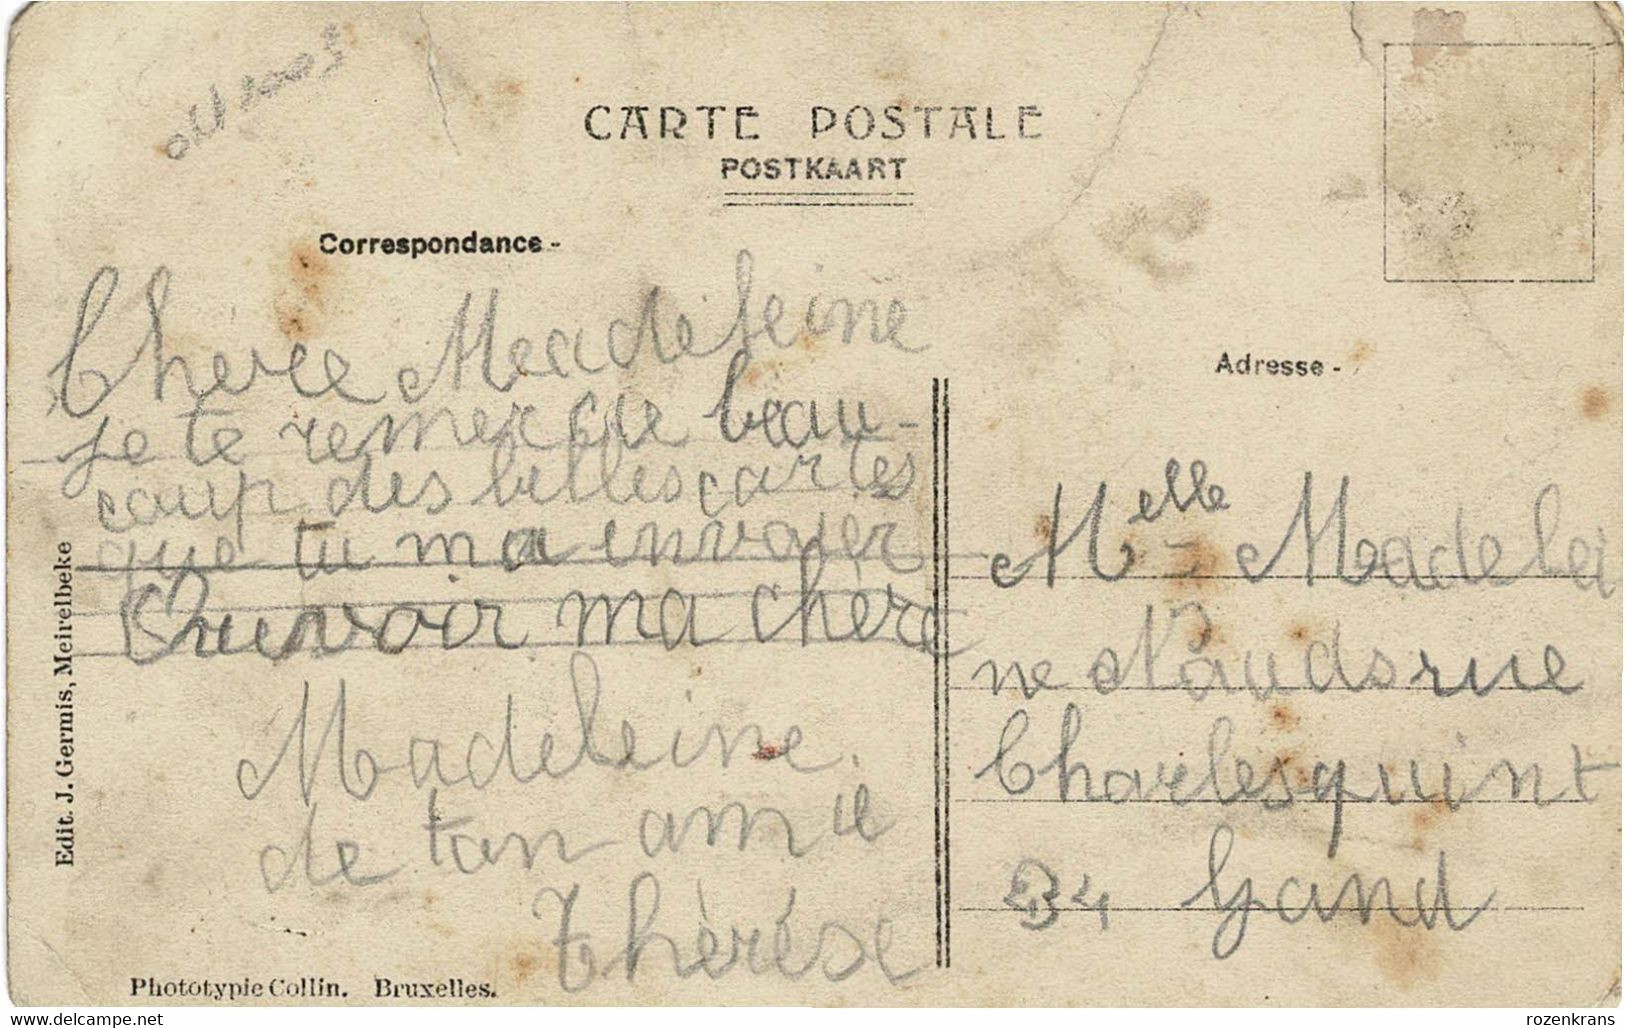 CARTE POSTALE
POSTKAART
Correspondance -
Chere Madeleine
je te remercie beau-
coup des belles cartes
que tu ma envoier
Aurvoir ma chère
Madeleine.
de ton amie
Thérèse
Adresse -
Melle Madelei
ne Nauds rue
Charlesquint
34 Gand
Edit. J. Germis, Meirelbeke
Phototypie Collin. Bruxelles.
www.delcampe.net
rozenkrans